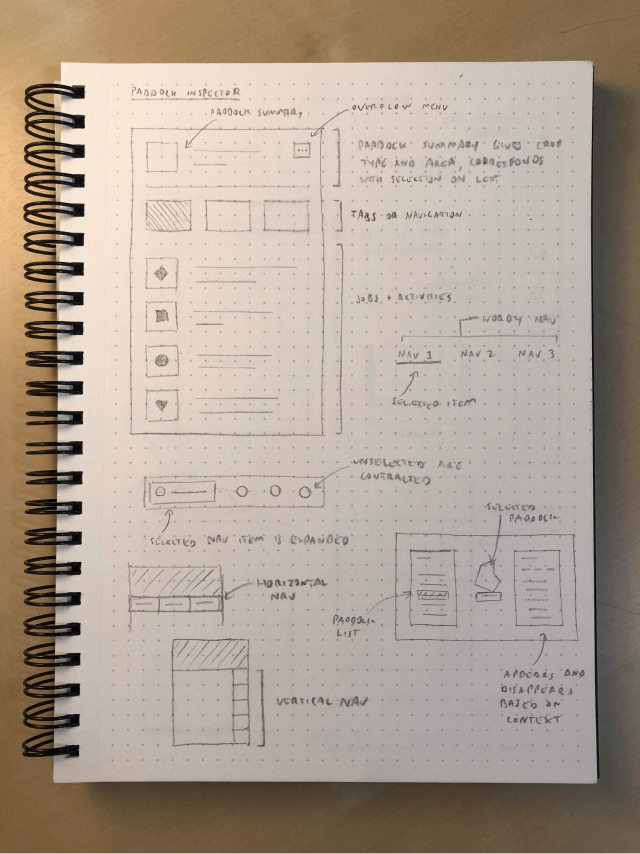 PADDOCK INSPECTOR
PADDOCK SUMMARY
OVERFLOW MENU
PADDOCK SUMMARY GIVES CROP
TYPE AND AREA, CORRESPONDS
WITH SELECTION ON LEFT
TABS OR NAVIGATION
JOBS + ACTIVITIES
WORDY NAV
NAV 1 NAV 2 NAV 3
SELECTED ITEM
UNSELECTED ARE
CONTRACTED
SELECTED NAV ITEM IS EXPANDED
SELECTED
PADDOCK
HORIZONTAL
NAV
PADDOCK
LIST
VERTICAL NAV
APPEARS AND
DISAPPEARS
BASED ON
CONTEXT